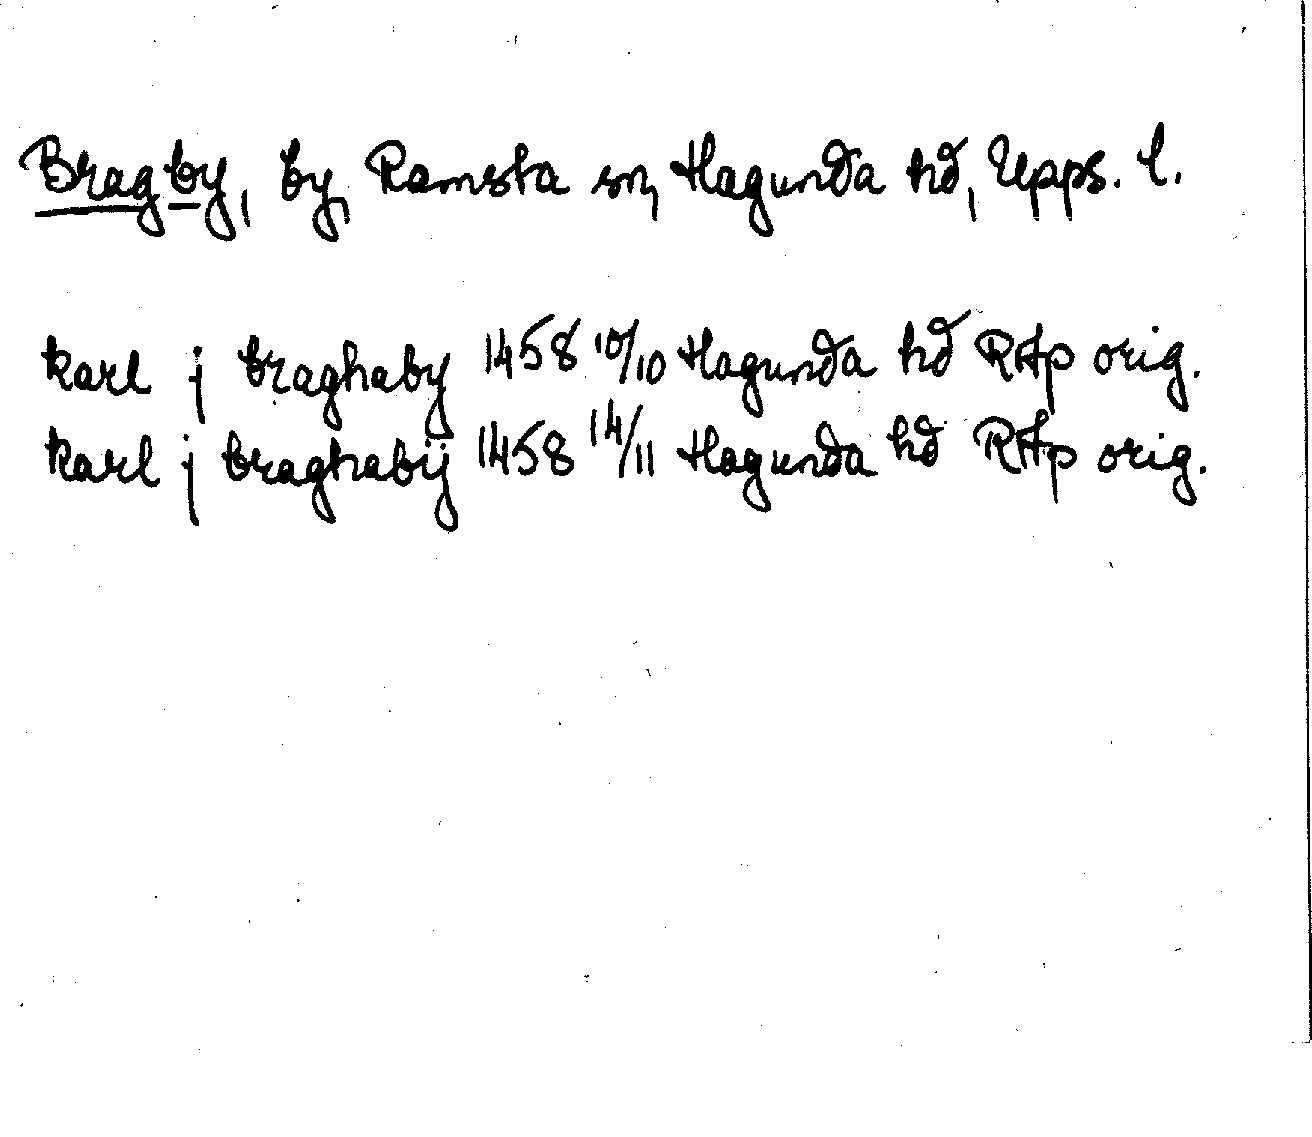 Bragby, by, Ramsta sn, Hagunda hd, Upps. l.
karl j braghaby 1458 10/10 Hagunda hd RAp orig.
karl j braghabÿ 1458 14/11 Hagunda hd RAp orig.